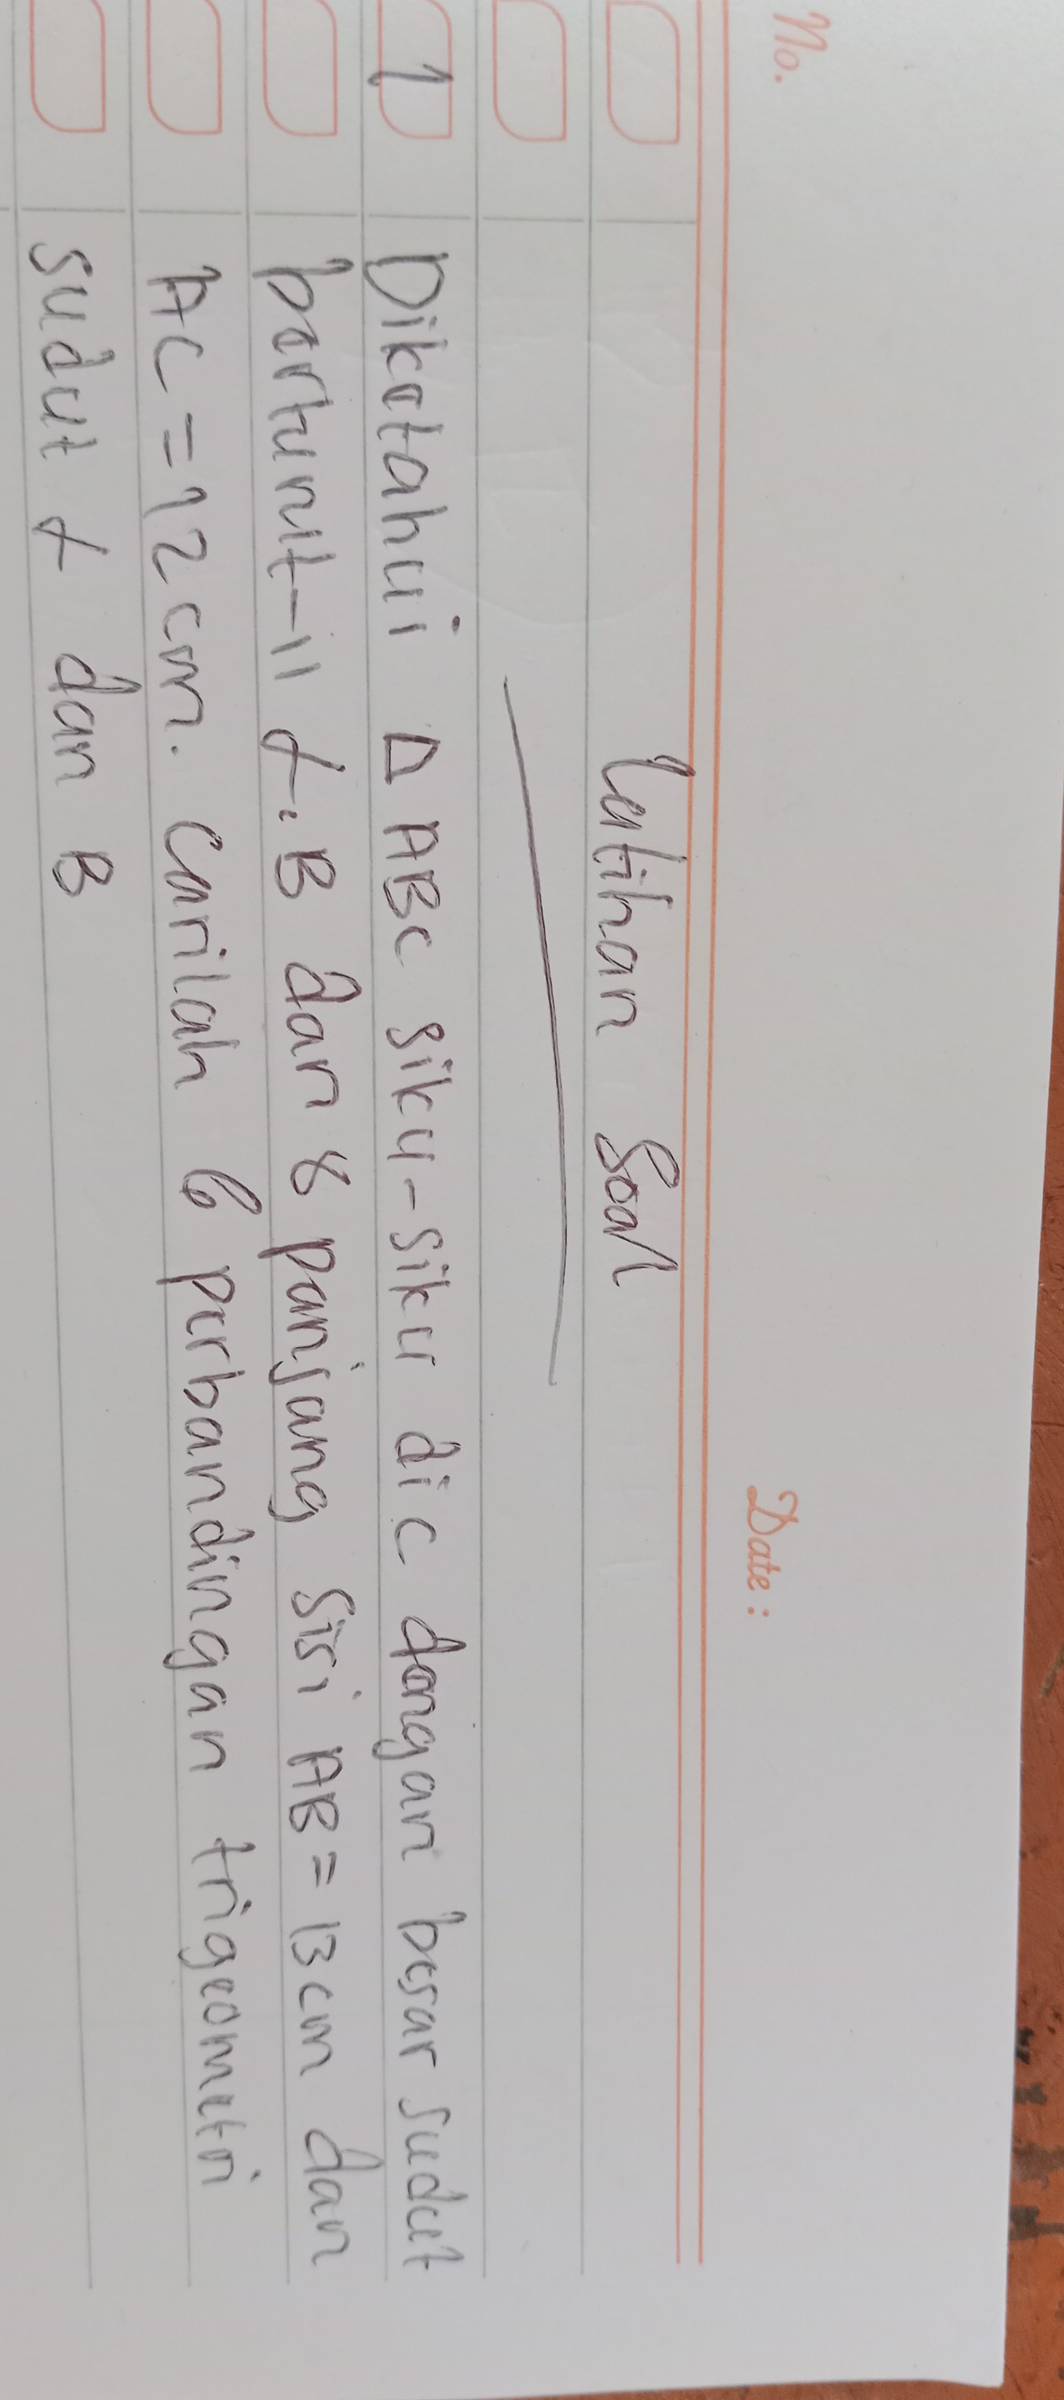 No.
Date:
Latihan Soal
1 Diketahui Δ ABC siku-siku di C dengan besar sudut
berturut-11 α, B dan 8 panjang sisi AB = 13 cm dan
AC = 12 cm. Carilah 6 perbandingan trigeometri
sudut α dan B